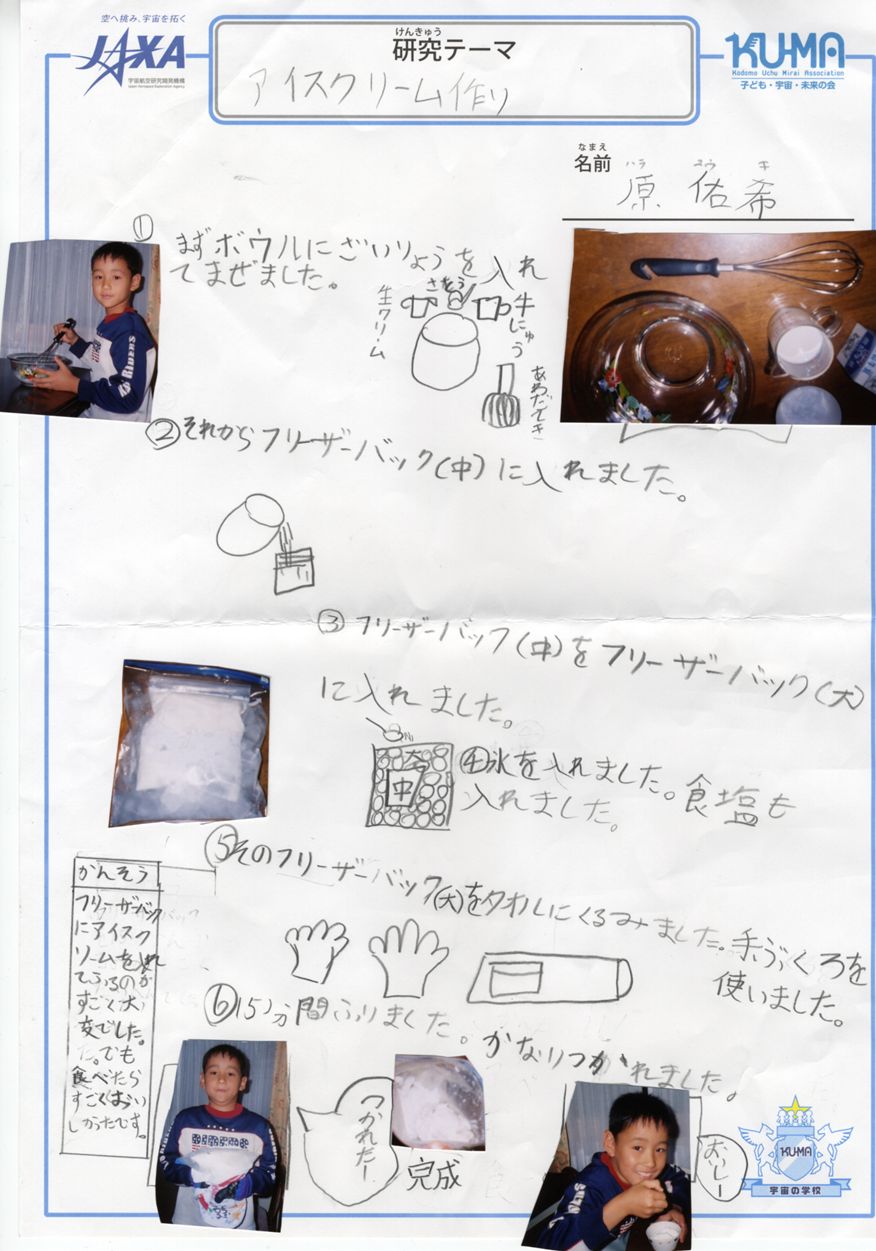 空へ挑み、宇宙を拓く
JAXA
宇宙航空研究開発機構
Japan Aerospace Exploration Agency
けんきゅう
研究テーマ
アイスクリーム作り
KU-MA
Kodomo Uchu Mirai Association
子ども・宇宙・未来の会
なまえ
名前
ハラ ユウ キ
原 佑希
① まずボウルにざいりょうを入れ
てまぜました。
生クリーム
さとう
牛にゅう
あわだてき
②それからフリーザーバック(中)に入れました。
③フリーザーバック(中)をフリーザーバック(大)
に入れました。
大
中
④氷を入れました。食塩も
入れました。
⑤そのフリーザーバック(大)をタオルにくるみました。手ぶくろを
使いました。
⑥15分間ふりました。かなりつかれました!
かんそう
フリーザーバック
にアイスク
リームを入れ
てふるのが
すごく大
変でした。
た。でも
食べたら
すごくおいし
しかったです。
つかれたー!
完成
おいしー
KU-MA
宇宙の学校